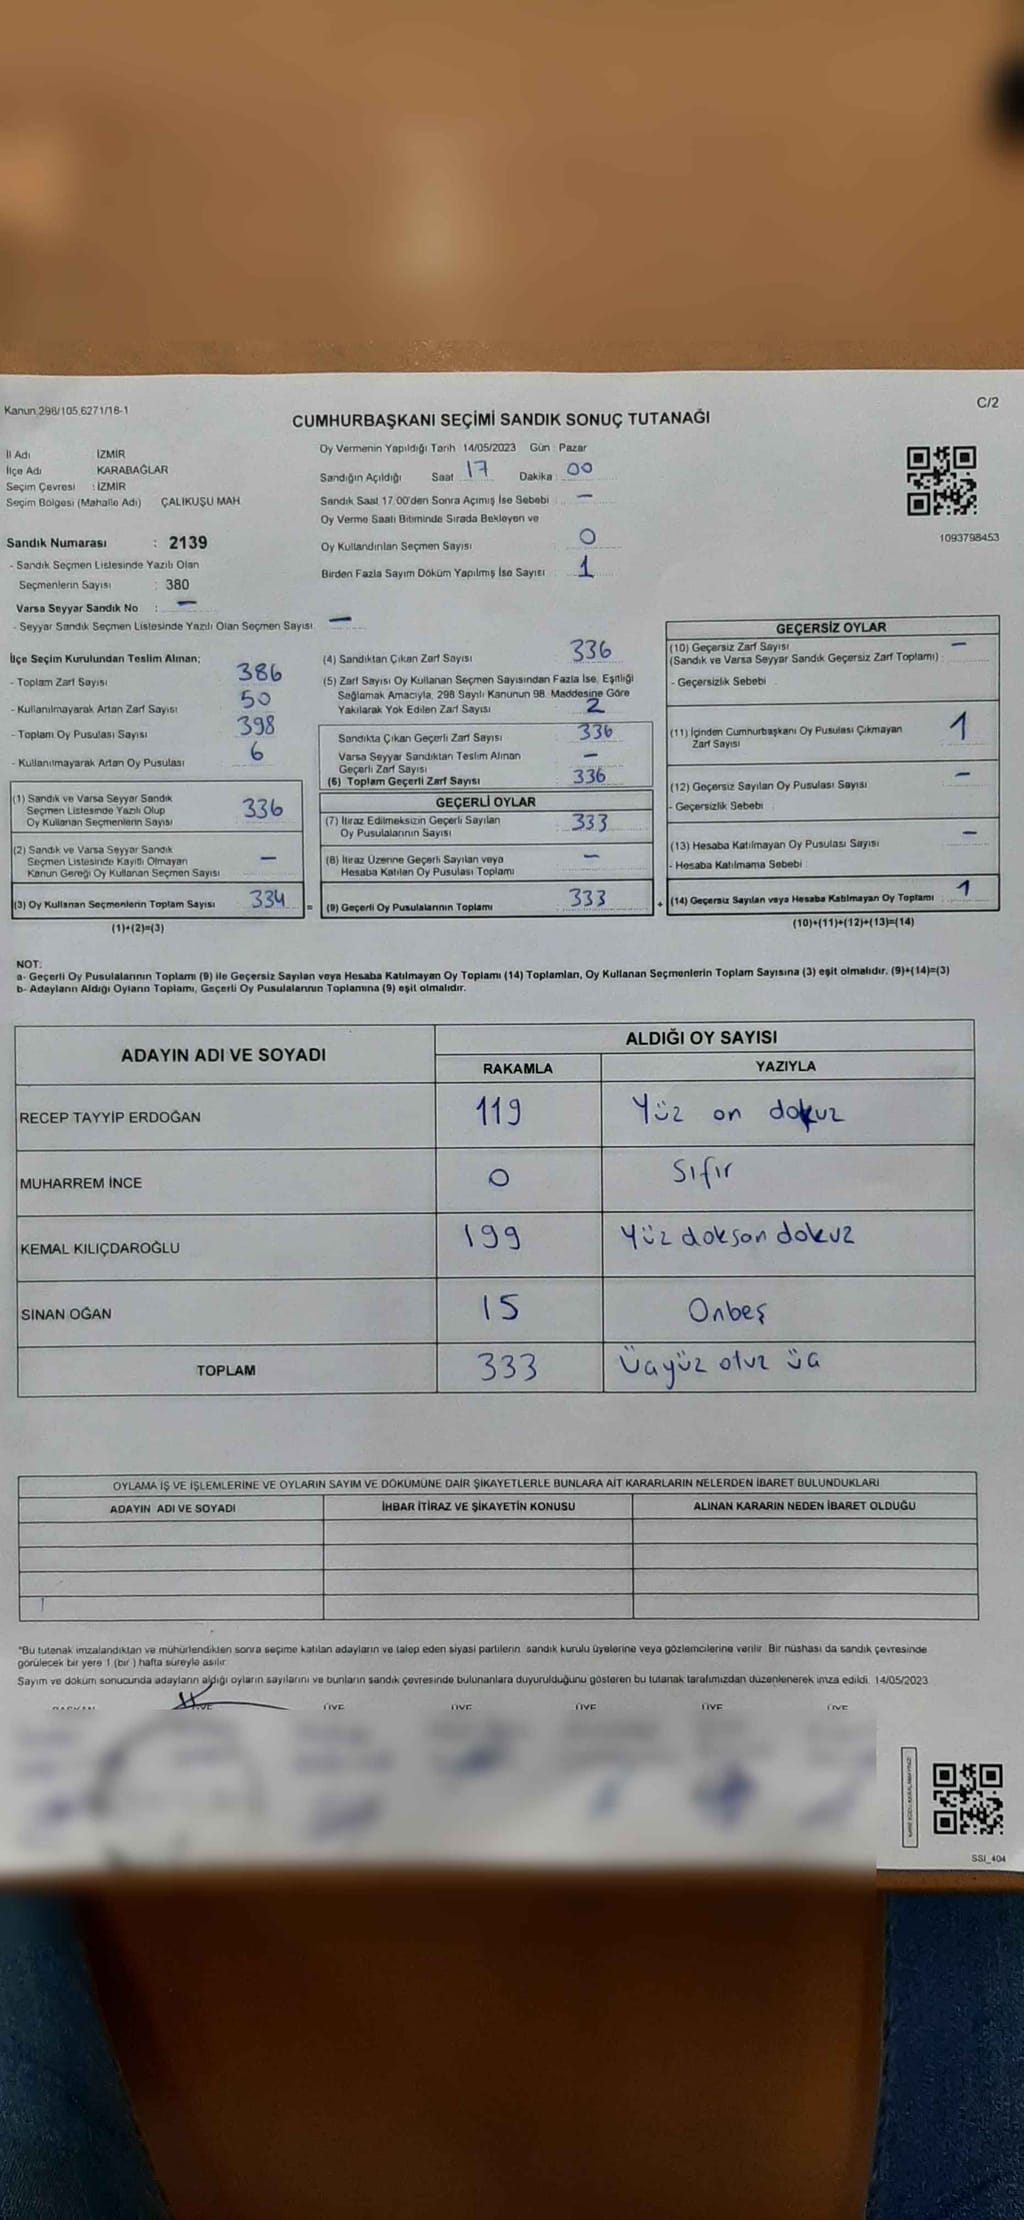 Kanun 298/105,6271/18-1
C/2
CUMHURBAŞKANI SEÇİMİ SANDIK SONUÇ TUTANAĞI
İl Adı İZMİR
İlçe Adı KARABAĞLAR
Seçim Çevresi : İZMİR
Seçim Bölgesi (Mahalle Adı) ÇALIKUŞU MAH
Sandık Numarası : 2139
- Sandık Seçmen Listesinde Yazılı Olan
Seçmenlerin Sayısı : 380
Varsa Seyyar Sandık No : –
- Seyyar Sandık Seçmen Listesinde Yazılı Olan Seçmen Sayısı –
Oy Vermenin Yapıldığı Tarih 14/05/2023 Gün : Pazar
Sandığın Açıldığı Saat 17 Dakika 00
Sandık Saat 17.00'den Sonra Açımış İse Sebebi : –
Oy Verme Saati Bitiminde Sırada Bekleyen ve
Oy Kullandırılan Seçmen Sayısı 0
Birden Fazla Sayım Döküm Yapılmış İse Sayısı : 1
1093798453
İlçe Seçim Kurulundan Teslim Alınan;
- Toplam Zarf Sayısı 386
- Kullanılmayarak Artan Zarf Sayısı 50
- Toplam Oy Pusulası Sayısı 398
- Kullanılmayarak Artan Oy Pusulası 6
(1) Sandık ve Varsa Seyyar Sandık
Seçmen Listesinde Yazılı Olup
Oy Kullanan Seçmenlerin Sayısı 336
(2) Sandık ve Varsa Seyyar Sandık
Seçmen Listesinde Kayıtlı Olmayan
Kanun Gereği Oy Kullanan Seçmen Sayısı –
(3) Oy Kullanan Seçmenlerin Toplam Sayısı 334 =
(1)+(2)=(3)
(4) Sandıktan Çıkan Zarf Sayısı 336
(5) Zarf Sayısı Oy Kullanan Seçmen Sayısından Fazla İse, Eşitliği
Sağlamak Amacıyla, 298 Sayılı Kanunun 98. Maddesine Göre
Yakılarak Yok Edilen Zarf Sayısı 2
Sandıkta Çıkan Geçerli Zarf Sayısı 336
Varsa Seyyar Sandıktan Teslim Alınan
Geçerli Zarf Sayısı –
(6) Toplam Geçerli Zarf Sayısı 336
GEÇERLİ OYLAR
(7) İtiraz Edilmeksizin Geçerli Sayılan
Oy Pusulalarının Sayısı 333
(8) İtiraz Üzerine Geçerli Sayılan veya
Hesaba Katılan Oy Pusulası Toplamı –
(9) Geçerli Oy Pusulalarının Toplamı 333 +
GEÇERSİZ OYLAR
(10) Geçersiz Zarf Sayısı –
(Sandık ve Varsa Seyyar Sandık Geçersiz Zarf Toplamı)
- Geçersizlik Sebebi
(11) İçinden Cumhurbaşkanı Oy Pusulası Çıkmayan
Zarf Sayısı 1
(12) Geçersiz Sayılan Oy Pusulası Sayısı –
- Geçersizlik Sebebi
(13) Hesaba Katılmayan Oy Pusulası Sayısı –
- Hesaba Katılmama Sebebi
(14) Geçersiz Sayılan veya Hesaba Katılmayan Oy Toplamı 1
(10)+(11)+(12)+(13)=(14)
NOT:
a- Geçerli Oy Pusulalarının Toplamı (9) ile Geçersiz Sayılan veya Hesaba Katılmayan Oy Toplamı (14) Toplamları, Oy Kullanan Seçmenlerin Toplam Sayısına (3) eşit olmalıdır. (9)+(14)=(3)
b- Adayların Aldığı Oyların Toplamı, Geçerli Oy Pusulalarının Toplamına (9) eşit olmalıdır.
ADAYIN ADI VE SOYADI ALDIĞI OY SAYISI
RAKAMLA YAZIYLA
RECEP TAYYİP ERDOĞAN 119 Yüz on dokuz
MUHARREM İNCE 0 Sıfır
KEMAL KILIÇDAROĞLU 199 Yüz doksan dokuz
SİNAN OĞAN 15 Onbeş
TOPLAM 333 Üçyüz otuz üç
OYLAMA İŞ VE İŞLEMLERİNE VE OYLARIN SAYIM VE DÖKÜMÜNE DAİR ŞİKAYETLERLE BUNLARA AİT KARARLARIN NELERDEN İBARET BULUNDUKLARI
ADAYIN ADI VE SOYADI İHBAR İTİRAZ VE ŞİKAYETİN KONUSU ALINAN KARARIN NEDEN İBARET OLDUĞU
*Bu tutanak imzalandıktan ve mühürlendikten sonra seçime katılan adayların ve talep eden siyasi partilerin sandık kurulu üyelerine veya gözlemcilerine verilir. Bir nüshası da sandık çevresinde
görülecek bir yere 1 (bir ) hafta süreyle asılır.
Sayım ve döküm sonucunda adayların aldığı oyların sayılarını ve bunların sandık çevresinde bulunanlara duyurulduğunu gösteren bu tutanak tarafımızdan düzenlenerek imza edildi. 14/05/2023
BAŞKAN ÜYE ÜYE ÜYE ÜYE ÜYE ÜYE
SSI_404